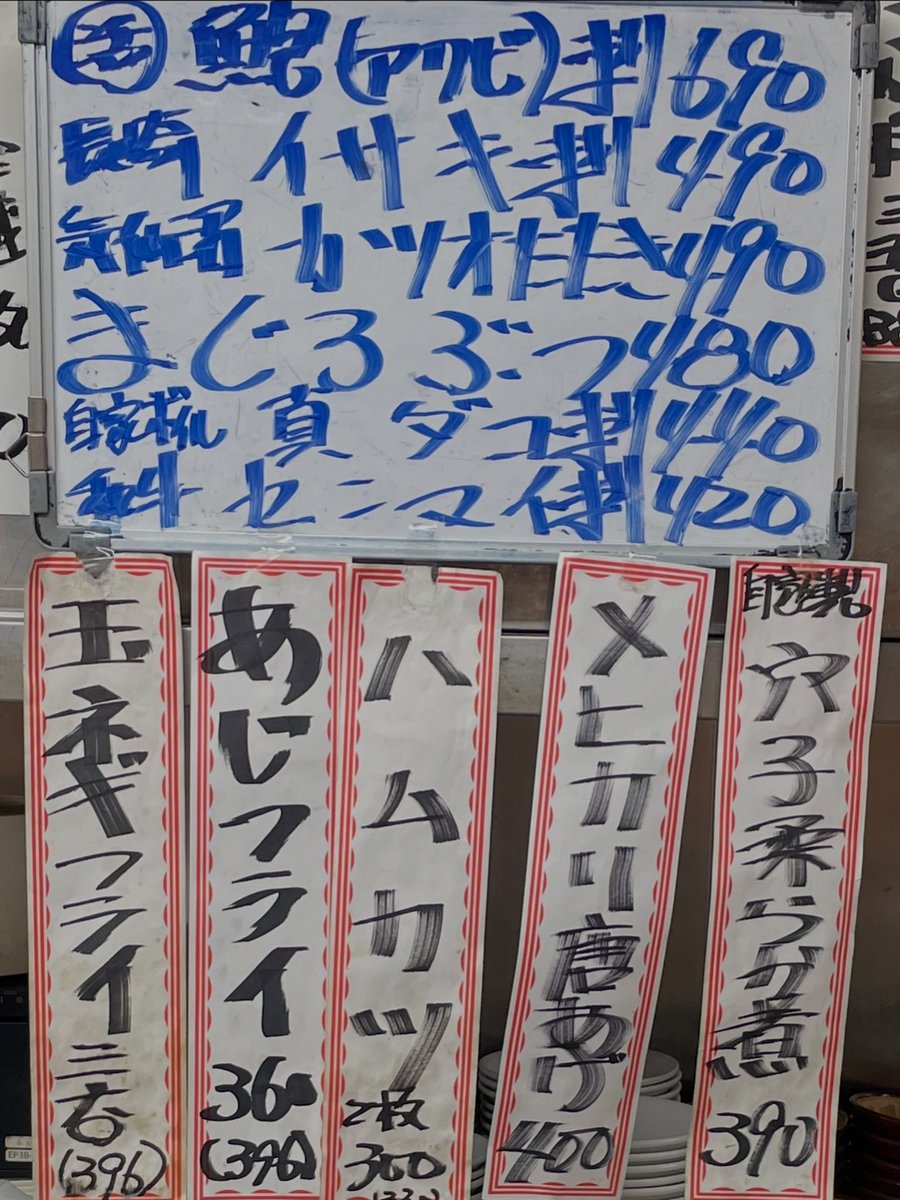 活 鮑(アワビ)刺690
長崎 イサキ刺490
気仙沼 カツオたたき490
まぐろぶつ480
自家ボイル 真ダコ刺440
センマイ刺420
玉ネギフライ三ヶ(396)
あじフライ360(396)
ハムカツ2枚300
メヒカリ唐あげ400
自家製 穴子柔らか煮390